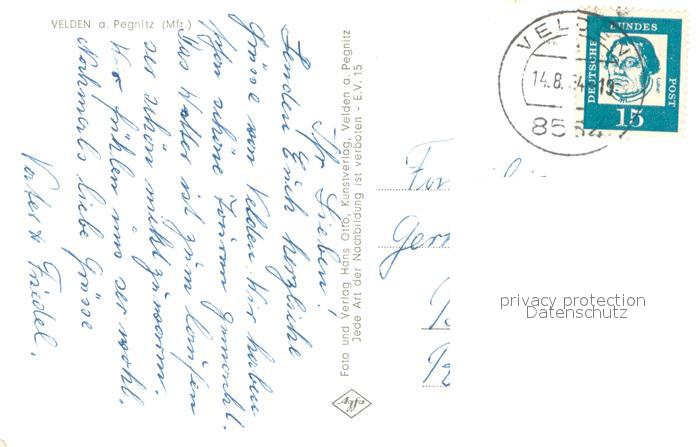 VELDEN a. Pegnitz (Mfr.)
Ihr Lieben!
Senden Euch herzliche
Grüsse von Velden. Wir haben
schöne Touren gemacht.
Das Wetter ist zum laufen
ser schön nicht zu warm.
Wir fühlen uns ser wohl.
Nochmals liebe Grüsse
Vater u. Friedel.
Foto und Verlag Hans Otto, Kunstverlag, Velden a. Pegnitz
Jede Art der Nachbildung ist verboten - E.V. 15
Agfa
VELD
14.8.64.19
856
DEUTSCHE
BUNDES
POST
15
privacy protection
Datenschutz